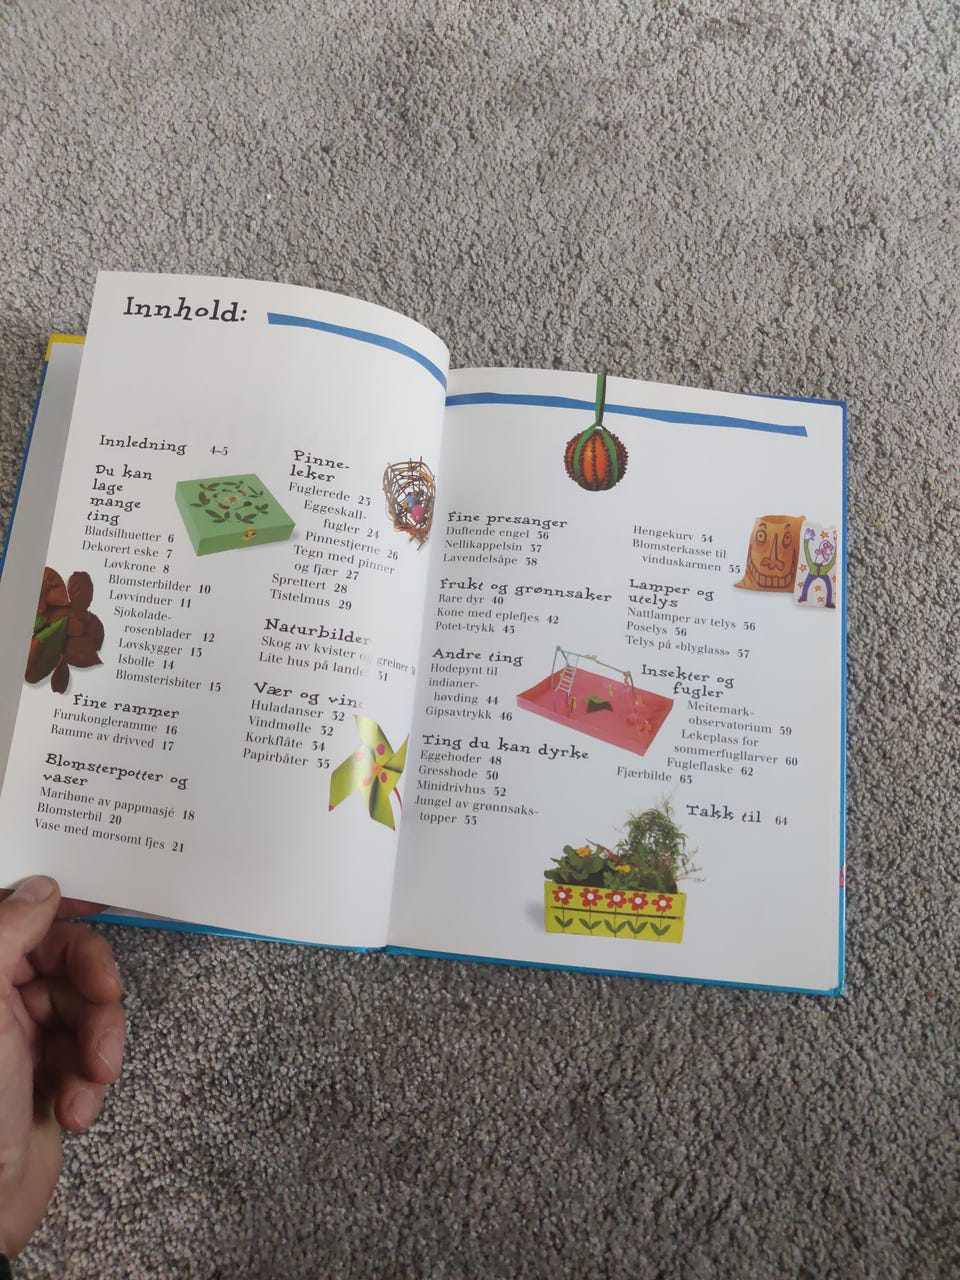 Innhold:
Innledning 4–5
Du kan
lage
mange
ting
Bladsilhuetter 6
Dekorert eske 7
Løvkrone 8
Blomsterbilder 10
Løvvinduer 11
Sjokolade-
rosenblader 12
Løvskygger 13
Isbolle 14
Blomsterisbiter 15
Fine rammer
Furukongleramme 16
Ramme av drivved 17
Blomsterpotter og
vaser
Marihøne av pappmasjé 18
Blomsterbil 20
Vase med morsomt fjes 21
Pinne-
leker
Fuglerede 23
Eggeskall-
fugler 24
Pinnestjerne 26
Tegn med pinner
og fjær 27
Sprettert 28
Tistelmus 29
Naturbilder
Skog av kvister og greiner
Lite hus på landet 31
Vær og vind
Huladanser 32
Vindmølle 32
Korkflåte 34
Papirbåter 35
Fine presanger
Duftende engel 36
Nellikappelsin 37
Lavendelsåpe 38
Frukt og grønnsaker
Rare dyr 40
Kone med eplefjes 42
Potet-trykk 43
Andre ting
Hodepynt til
indianer-
høvding 44
Gipsavtrykk 46
Ting du kan dyrke
Eggehoder 48
Gresshode 50
Minidrivhus 52
Jungel av grønnsaks-
topper 53
Hengekurv 54
Blomsterkasse til
vinduskarmen 55
Lamper og
utelys
Nattlamper av telys 56
Poselys 56
Telys på «blyglass» 57
Insekter og
fugler
Meitemark-
observatorium 59
Lekeplass for
sommerfugllarver 60
Fugleflaske 62
Fjærbilde 63
Takk til 64